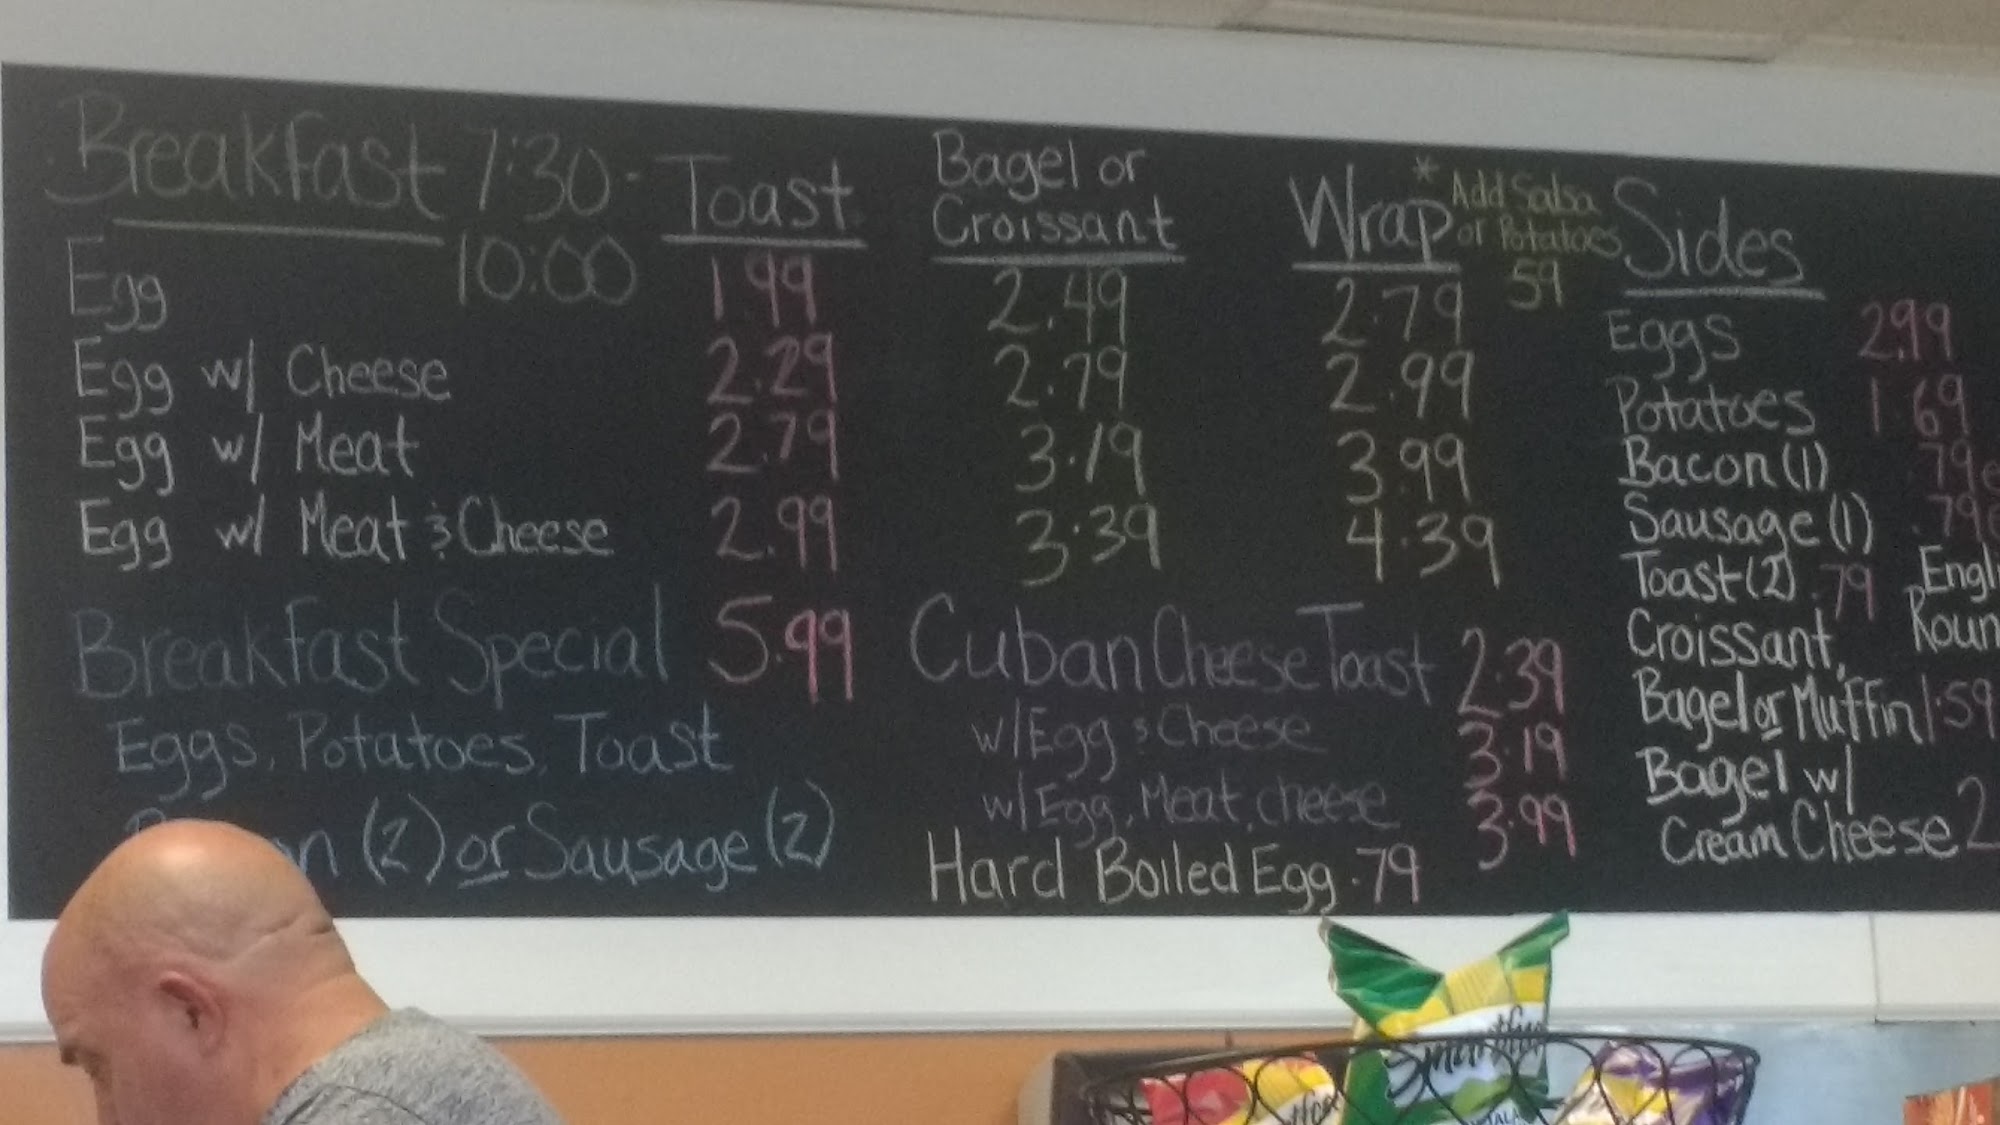 Breakfast 7:30 -
10:00
Toast
Bagel or
Croissant
Wrap
* Add Salsa
or Potatoes
59
Egg 1.99 2.49 2.79
Egg w/ Cheese 2.29 2.79 2.99
Egg w/ Meat 2.79 3.19 3.99
Egg w/ Meat & Cheese 2.99 3.39 4.39
Breakfast Special 5.99
Eggs, Potatoes, Toast
(2) or Sausage (2)
Cuban Cheese Toast 2.39
w/ Egg & Cheese 3.19
w/ Egg, Meat, cheese 3.99
Hard Boiled Egg .79
Sides
Eggs 2.99
Potatoes 1.69
Bacon (1) .79
Sausage (1) .79
Toast (2) .79
Croissant,
Bagel or Muffin 1.59
Bagel w/
Cream Cheese 2
Smartfood